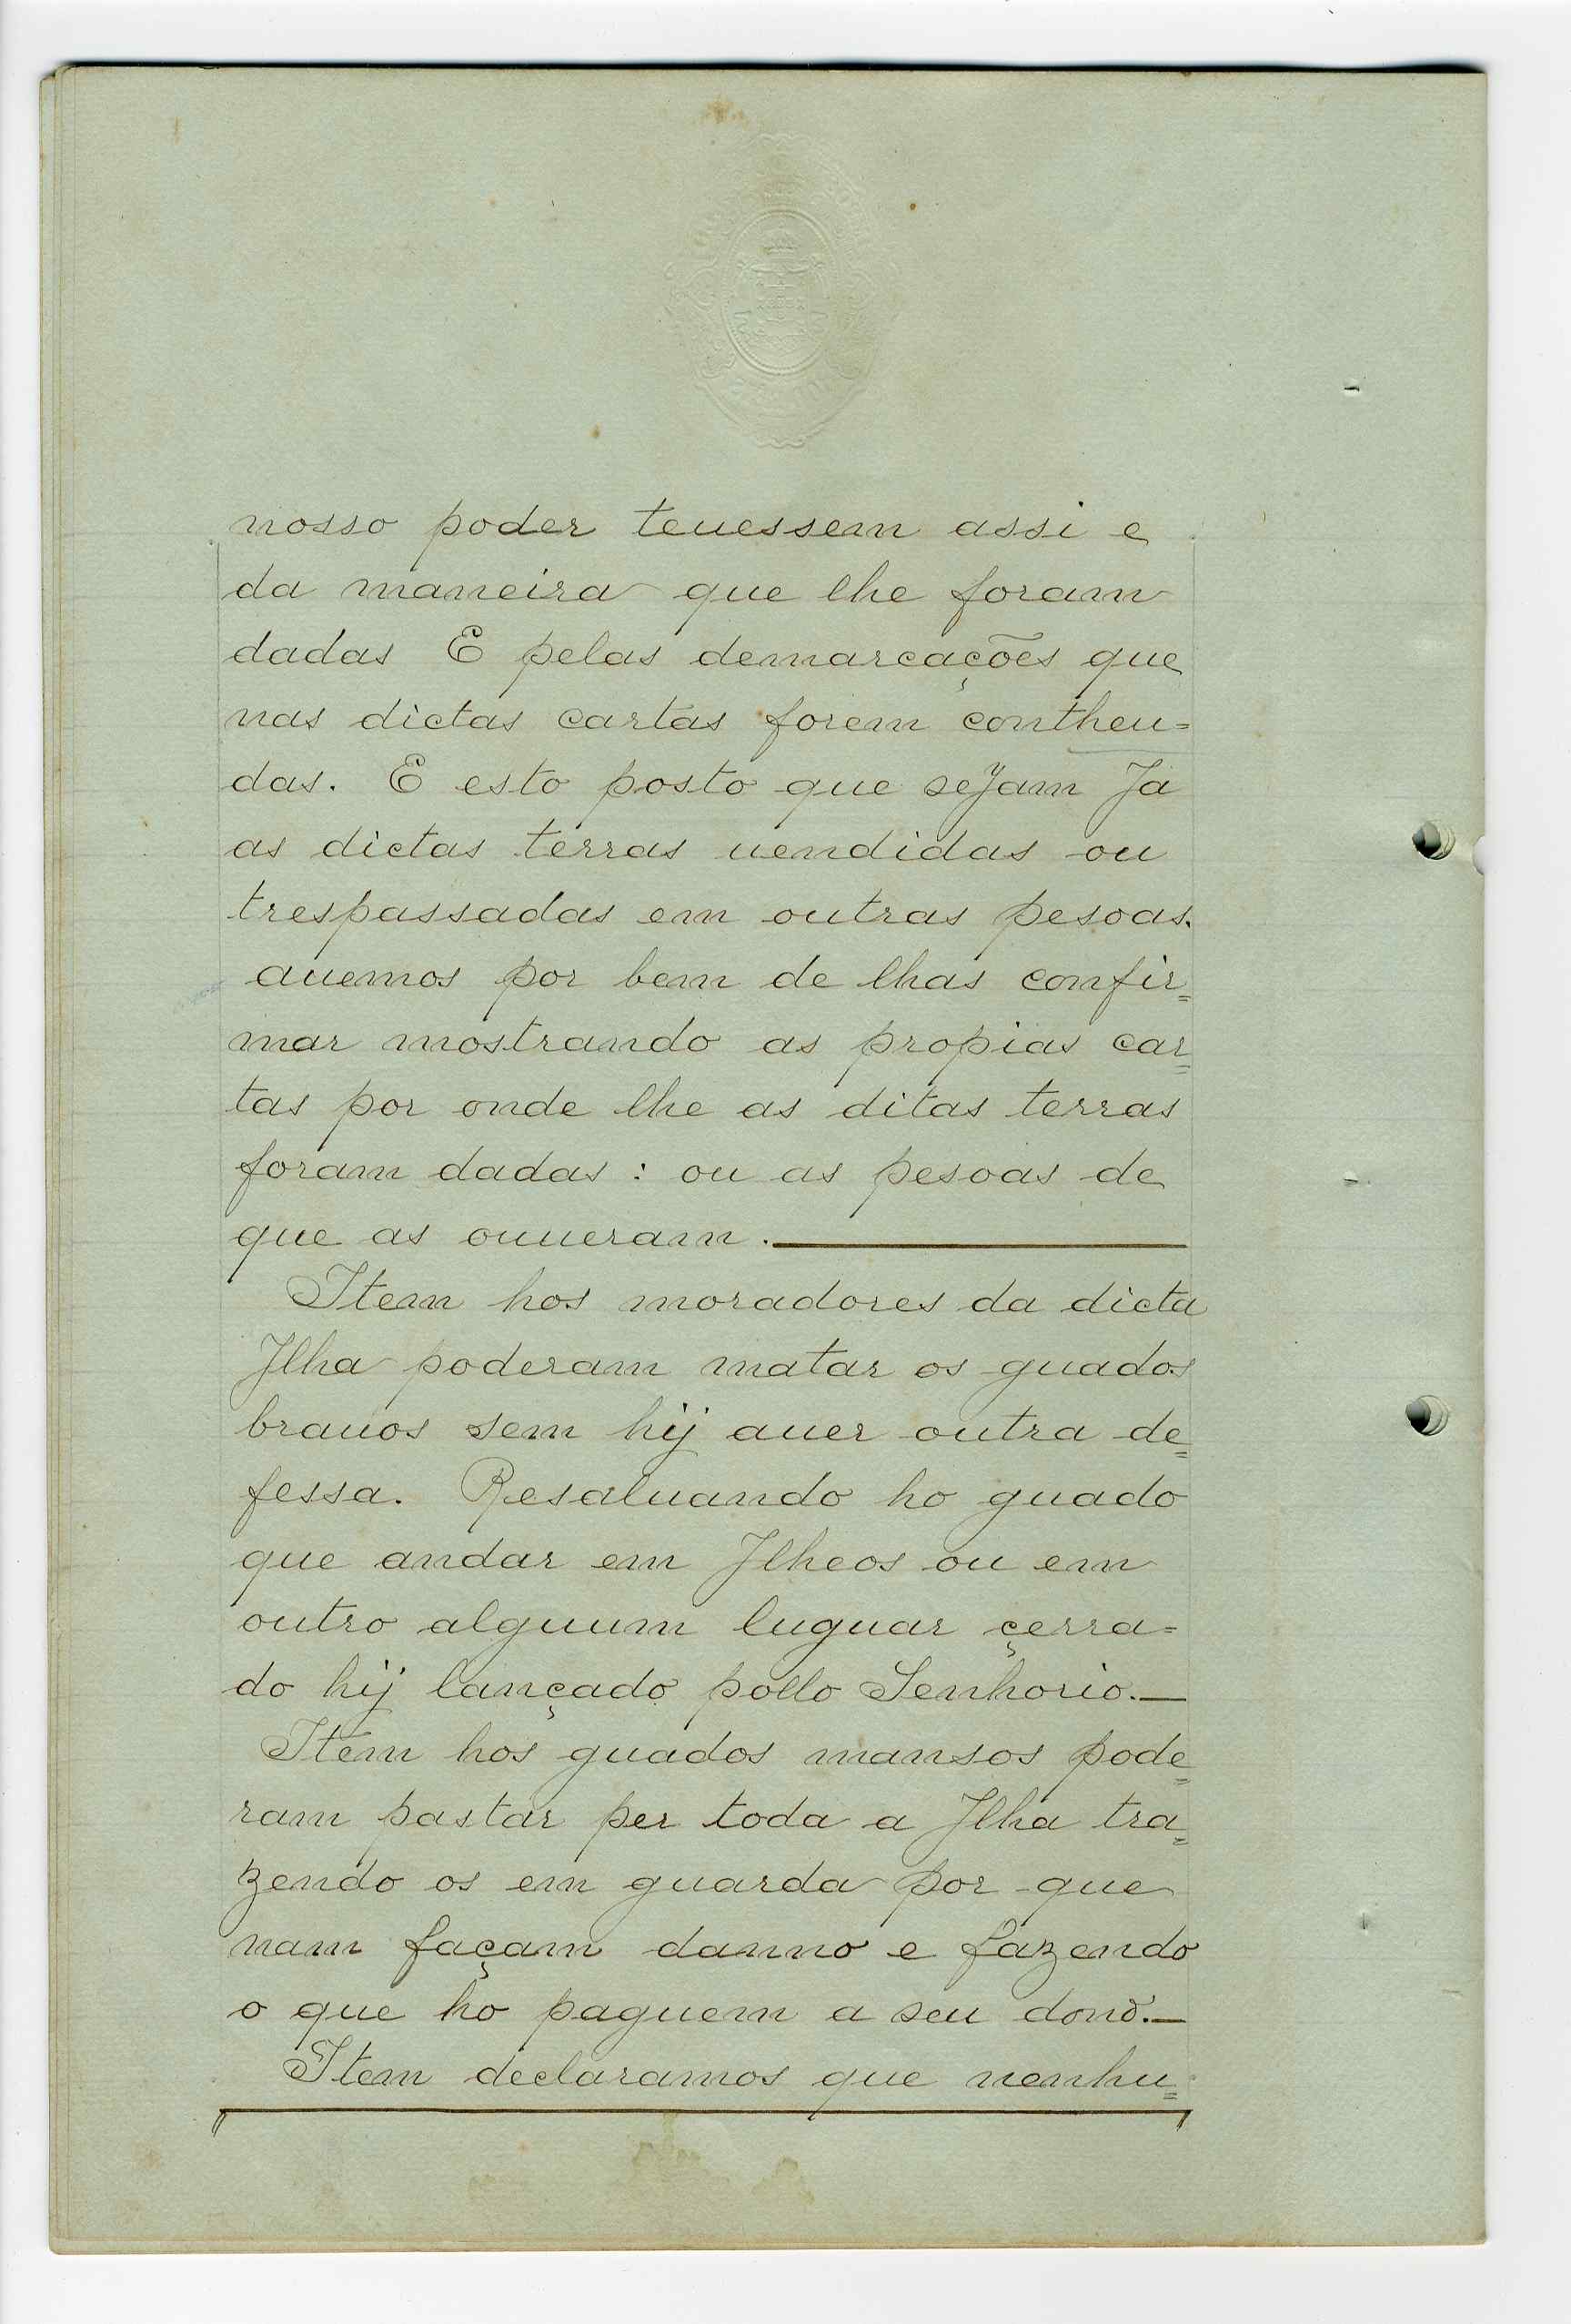 nosso poder teuessem assi e
da maneira que lhe foram
dadas E pelas demarcações que
nas dictas cartas forem contheu=
das. E esto posto que seJam Ja
as dictas terras uendidas ou
trespassadas em outras pesoas.
auemos por bem de lhas confir=
mar mostrando as propias car=
tas por onde lhe as ditas terras
foram dadas: ou as pesoas de
que as ouueram.
Item hos moradores da dicta
Jlha poderam matar os guados
brauos sem hij auer outra de=
fessa. Resaluando ho guado
que andar em Jlheos ou em
outro alguum luguar çerra=
do hij lançado pollo Senhorio.
Item hos guados mansos pode=
ram pastar per toda a Jlha tra=
zendo os em guarda por que
nam façam danno e fazendo
o que ho paguem a seu dono.
Item declaramos que nenhu=